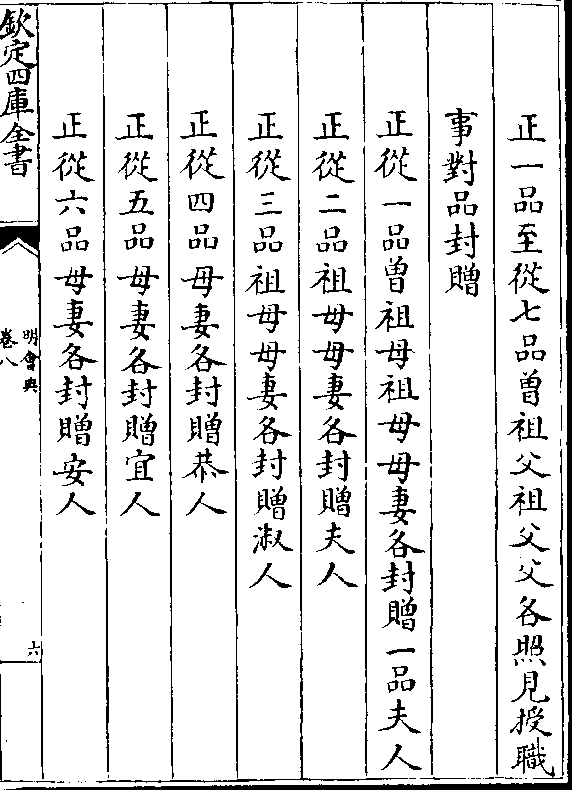 正一品至從七品曽祖父祖父父各照見授職
事對品封贈
正從一品曽祖母祖母母妻各封贈一品夫人
正從二品祖母母妻各封贈夫人
正從三品祖母母妻各封贈淑人
正從四品母妻各封贈恭人
正從五品母妻各封贈宜人
正從六品母妻各封贈安人
欽定四庫全書
明會典
卷八
六